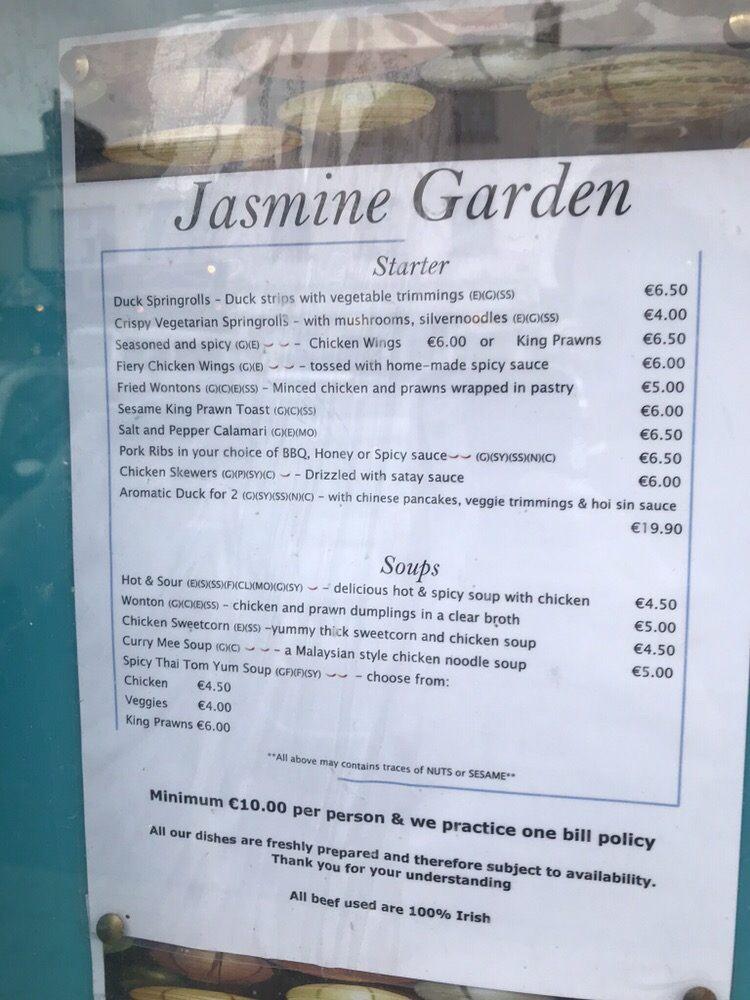 Jasmine Garden
Starter
Duck Springrolls - Duck strips with vegetable trimmings (E)(G)(SS) €6.50
Crispy Vegetarian Springrolls - with mushrooms, silvernoodles (E)(G)(SS) €4.00
Seasoned and spicy (G)(E) - Chicken Wings €6.00 or King Prawns €6.50
Fiery Chicken Wings (G)(E) - tossed with home-made spicy sauce €6.00
Fried Wontons (G)(C)(E)(SS) - Minced chicken and prawns wrapped in pastry €5.00
Sesame King Prawn Toast (G)(C)(SS) €6.00
Salt and Pepper Calamari (G)(E)(MO) €6.50
Pork Ribs in your choice of BBQ, Honey or Spicy sauce (G)(SY)(SS)(N)(C) €6.50
Chicken Skewers (G)(P)(SY)(C) - Drizzled with satay sauce €6.00
Aromatic Duck for 2 (G)(SY)(SS)(N)(C) - with chinese pancakes, veggie trimmings & hoi sin sauce
€19.90
Soups
Hot & Sour (E)(S)(SS)(F)(CL)(MO)(G)(SY) - delicious hot & spicy soup with chicken €4.50
Wonton (G)(C)(E)(SS) - chicken and prawn dumplings in a clear broth €5.00
Chicken Sweetcorn (E)(SS) -yummy thick sweetcorn and chicken soup €4.50
Curry Mee Soup (G)(C) - a Malaysian style chicken noodle soup €5.00
Spicy Thai Tom Yum Soup (GF)(F)(SY) - choose from:
Chicken €4.50
Veggies €4.00
King Prawns €6.00
**All above may contains traces of NUTS or SESAME**
Minimum €10.00 per person & we practice one bill policy
All our dishes are freshly prepared and therefore subject to availability.
Thank you for your understanding
All beef used are 100% Irish